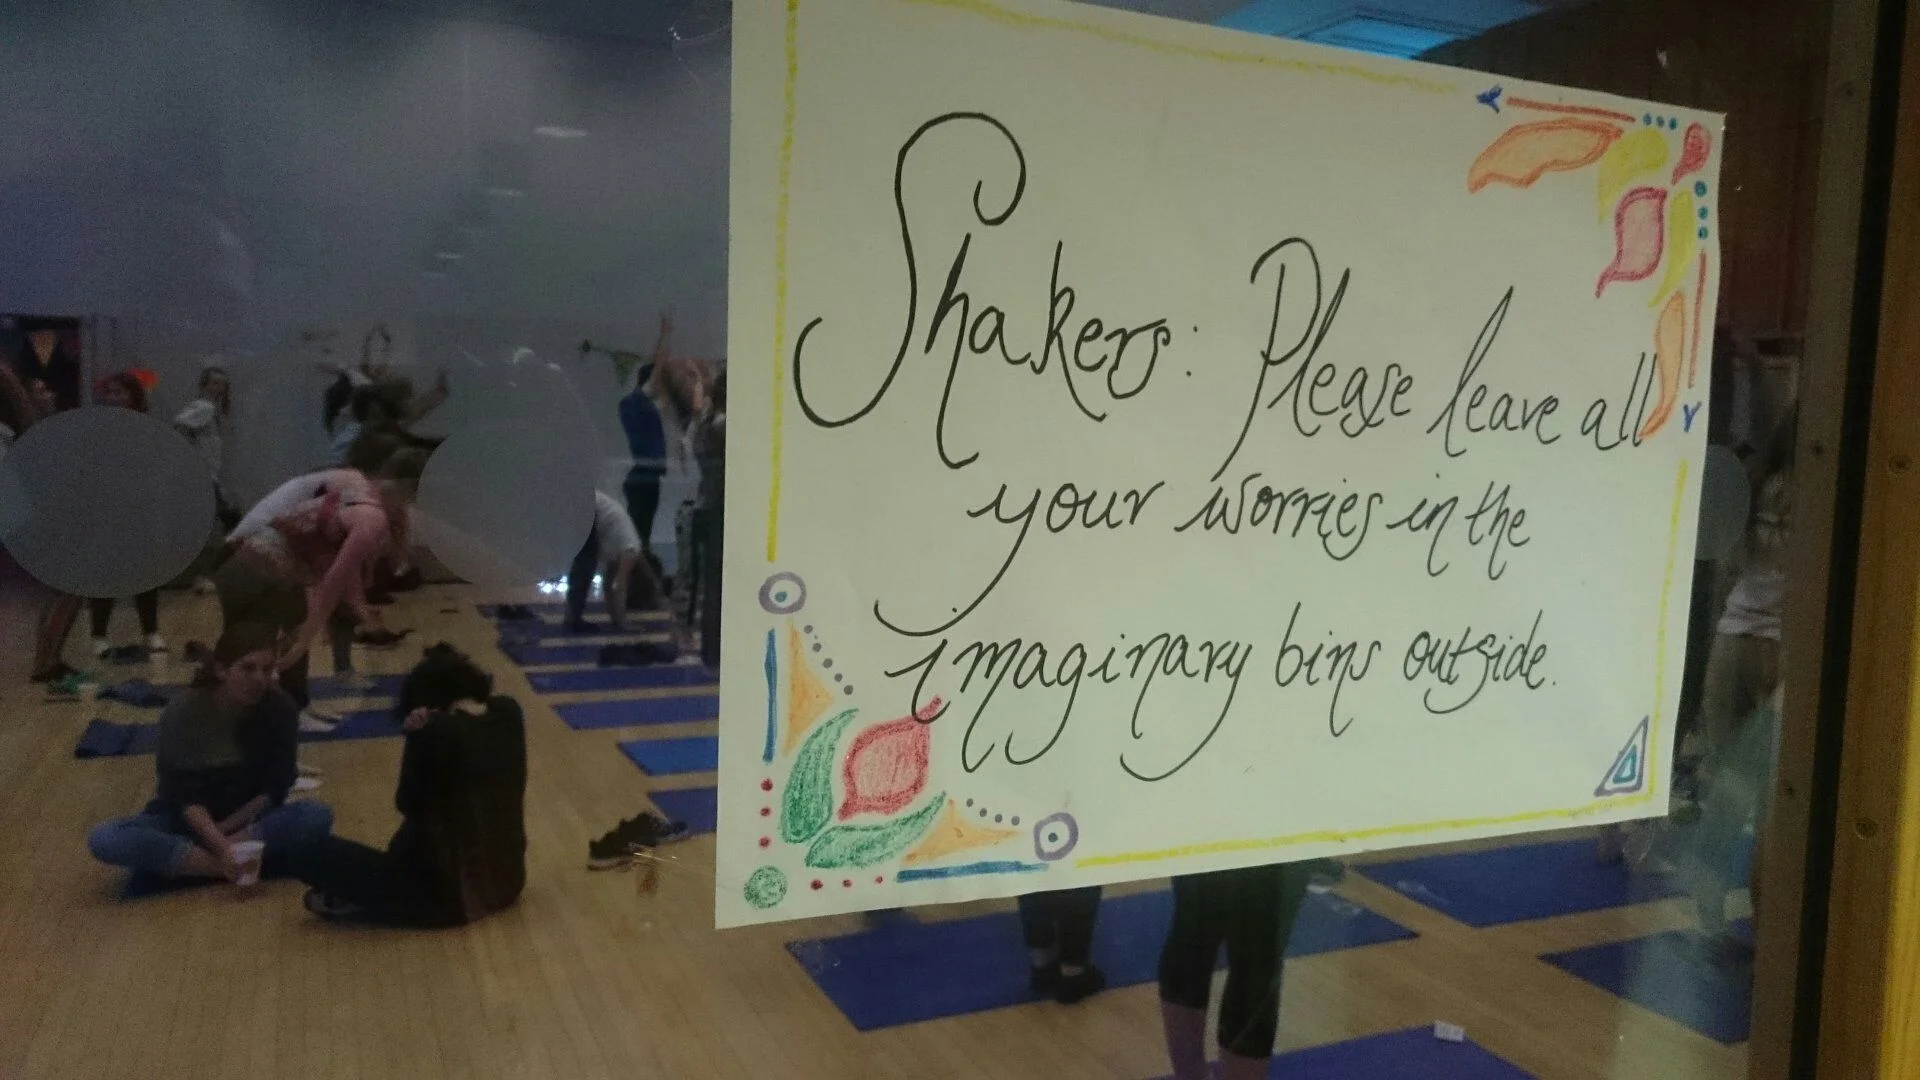 Shakers: Please leave all
your worries in the
imaginary bins outside.